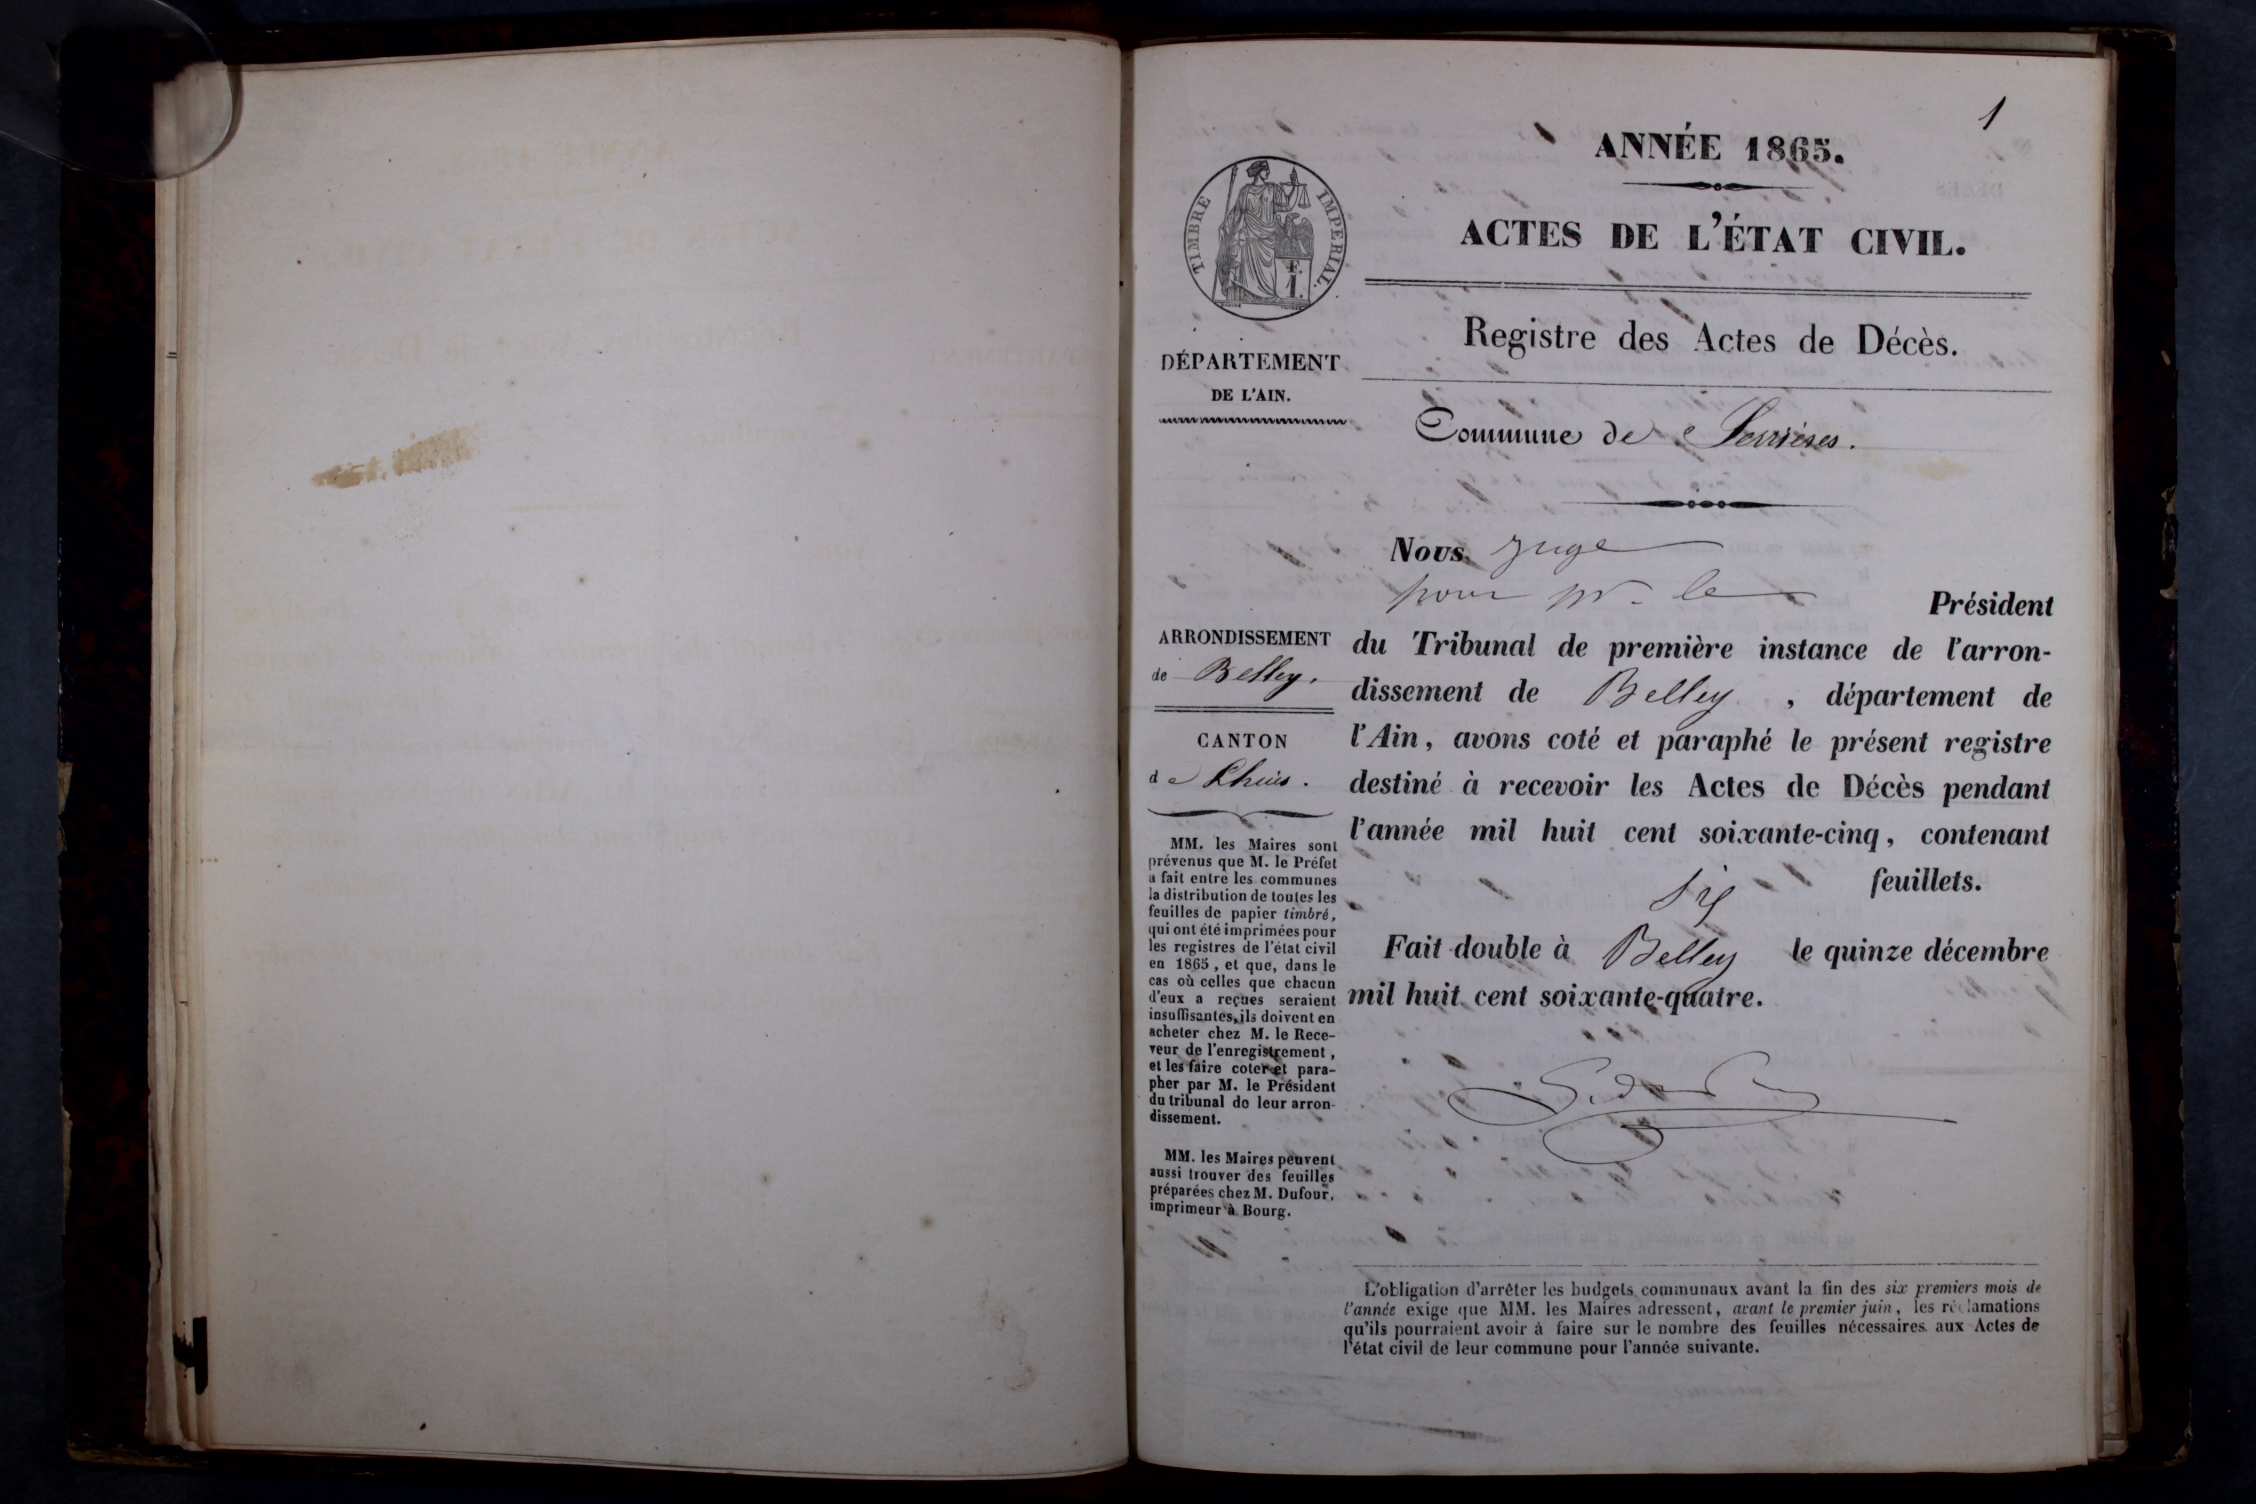 1
ANNÉE 1865.
TIMBRE IMPERIAL.
F.
1.
ACTES DE L'ÉTAT CIVIL.
Registre des Actes de Décès.
DÉPARTEMENT
DE L'AIN.
Commune de Serrières.
Nous Juge
pour Mr. le Président
ARRONDISSEMENT
de Belley.
CANTON
de Lhuis.
du Tribunal de première instance de l'arron-
dissement de Belley, département de
l'Ain, avons coté et paraphé le présent registre
destiné à recevoir les Actes de Décès pendant
l'année mil huit cent soixante-cinq, contenant
six feuillets.
Fait double à Belley le quinze décembre
mil huit cent soixante-quatre.
MM. les Maires sont
prévenus que M. le Préfet
a fait entre les communes
la distribution de toutes les
feuilles de papier timbré,
qui ont été imprimées pour
les registres de l'état civil
en 1865, et que, dans le
cas où celles que chacun
d'eux a reçues seraient
insuffisantes, ils doivent en
acheter chez M. le Rece-
veur de l'enregistrement,
et les faire coter et para-
pher par M. le Président
du tribunal de leur arron-
dissement.
MM. les Maires peuvent
aussi trouver des feuilles
préparées chez M. Dufour,
imprimeur à Bourg.
L'obligation d'arrêter les budgets communaux avant la fin des six premiers mois de
l'année exige que MM. les Maires adressent, avant le premier juin, les réclamations
qu'ils pourraient avoir à faire sur le nombre des feuilles nécessaires aux Actes de
l'état civil de leur commune pour l'année suivante.